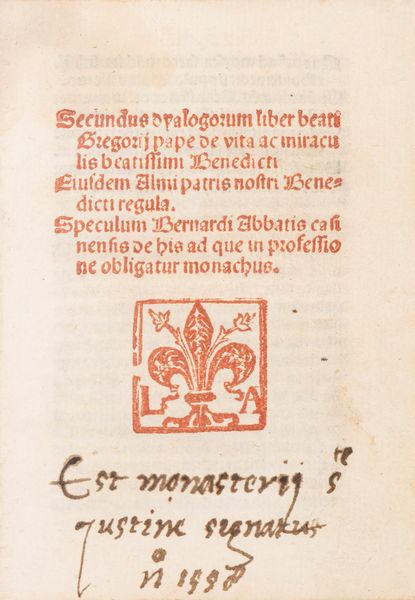 Secundus dyalogorum liber beati
Gregorij pape de vita ac miracu
lis beatissimi Benedicti
Eiusdem Almi patris nostri Bene-
dicti regula.
Speculum Bernardi Abbatis casi
nensis de his ad que in professio
ne obligatur monachus.
L A
Est monasterij s te
Justine signatus
n o 1558